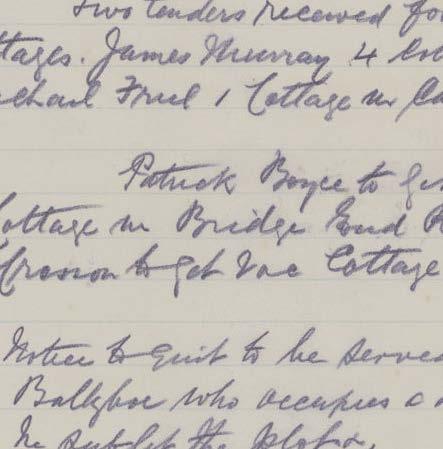 Two tenders received for
ttages. James Murray 4 Co
chael Friel 1 Cottage in Co
Patrick Boyce to ge
Cottage in Bridge End
Crossan to get Vac Cottage
Notice to Quit to be served
Ballyboe who occupies a
he sublet the plot